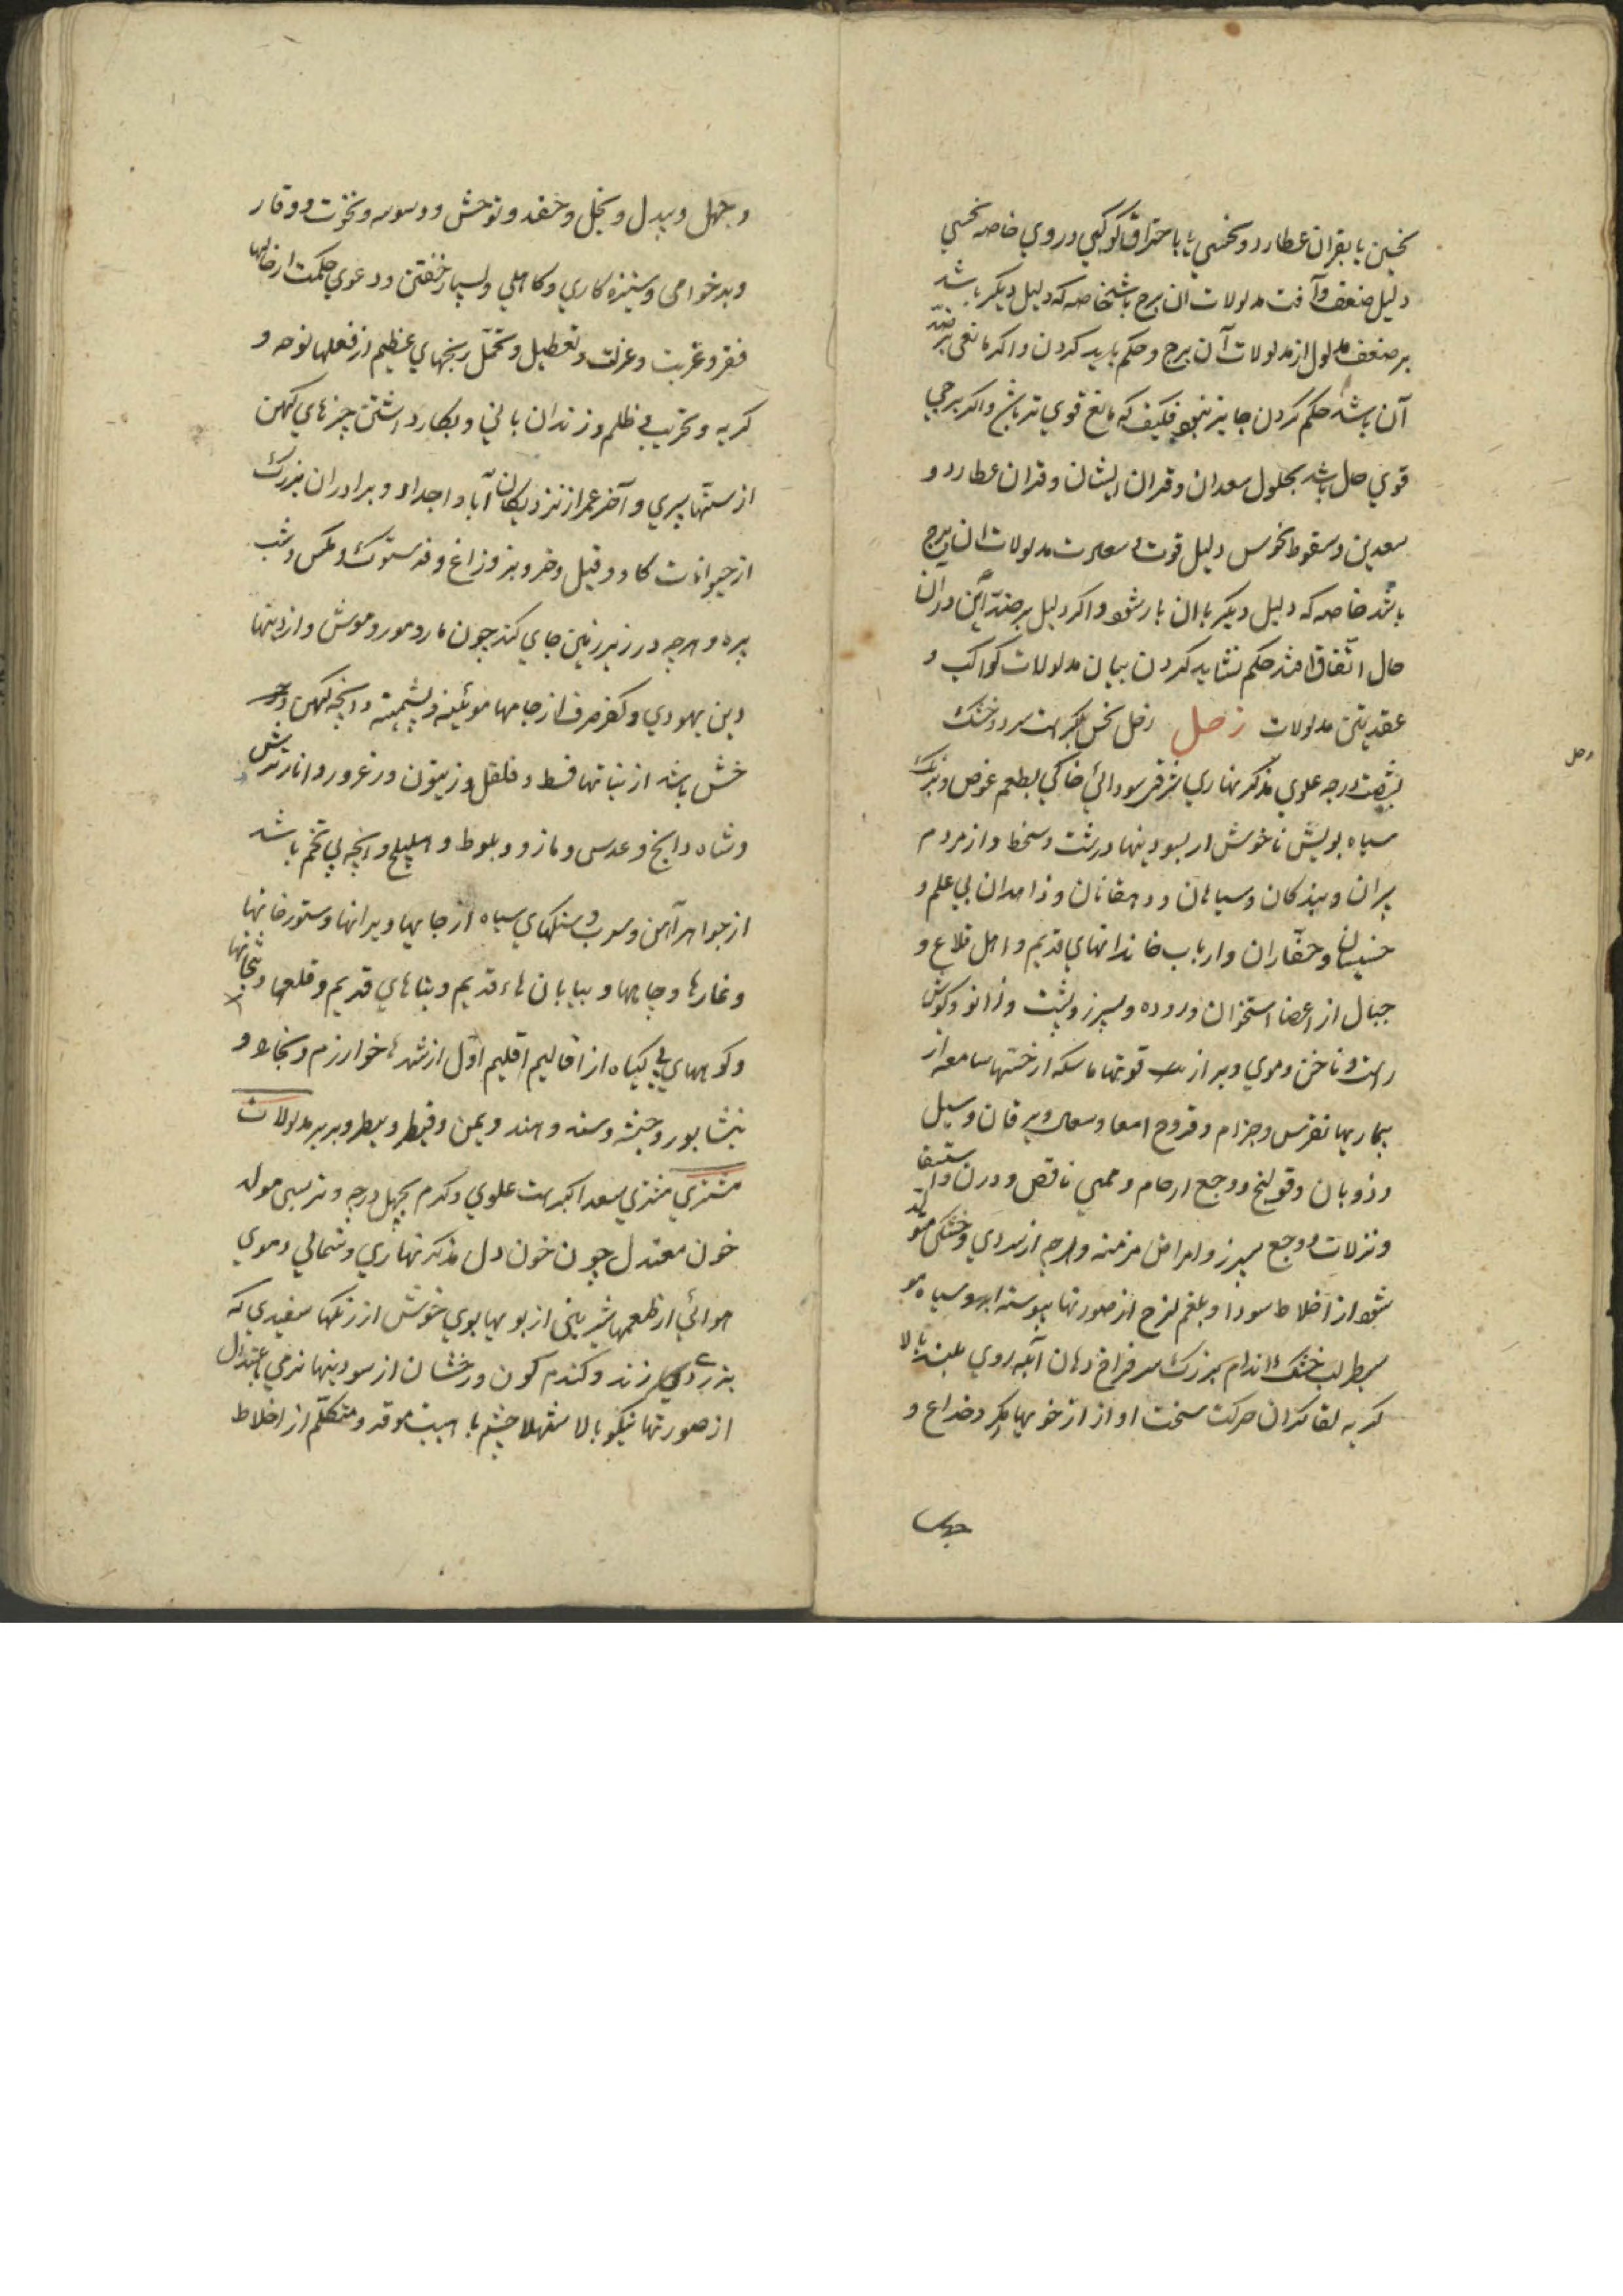 نحسین یا بقران عطارد و نحسی یا باحتراق کوکبی در وی خاصه نحسی
دلیل ضعف و آفت مدلولات آن برج باشد خاصه که دلیل دیکر باشد
بر ضعف مدلول از مدلولات آن برج و حکم باید کردن و اکر مانعی بر ضد
آن باشد حکم کردن جایز نبود فکیف که مانع قوی تر باشد و اکر برجی
قوی حال باشد بحلول سعدان و قران ایشان و قران عطارد و
سعدین و سقوط نحوس دلیل قوت و سعادت مدلولات آن برج
باشد خاصه که دلیل دیکر با آن یار شود و اکر دلیل بر ضد این در آن
حال اتفاق افتد حکم نشاید کردن بیان مدلولات کواکب و
عقدیتن مدلولات زحل زحل نحس اکبر است سرد و خشک
زحل
بشصت درجه علوی مذکر نهاری شرقی سودائی خاکی بطعم عفص و برنک
سیاه بویش ناخوش از بسودینها درشت و سخط و از مردم
پیران و بندکان و سیاهان و دهقانان و زاهدان بی علم و
خسیسان و حفاران و ارباب خاندانهای قدیم و اهل قلاع و
جبال از اعضا استخوان و روده و سپرز و پشت و زانو و کوش
راست و ناخن و موی و براز قوتها ماسکه از حستها سامعه از
بیماریها نقرس و جذام و قروح امعا و یرقان و سل
و ذوبان و قولنج و وجع ارحام و حمی ناقص و درن و استسقا
و نزلات و وجع سپرز و امراض مزمنه و هرچه از سردی و خشکی متولد
شود از اخلاط سودا و بلغم لزج از صورتها پیوسته ابرو سیاه مو
سطبر لب خشک اندام بزرک سر فراخ دهان آبله روی بلند بالا
کریه لقا کران حرکت سخت آواز از خویها مکر و خداع و
جهل
و جهل و بیدل و بخل و حقد و توحش و وسوسه و نخوت و وقار
و بدخواهی و ستیزه کاری و کاهلی و بسیار خفتن و دعوی حکمت از حالها
فقر و غربت و عزلت و تعطیل و تحمل رنجهای عظیم از فعلها نوحه و
کریه و تخریب و ظلم و زندان بانی و بکار داشتن چیزهای کهن
از سنها پیری و آخر عمر از نزدیکان آبا و اجداد و برادران بزرک
از حیوانات کاو و فیل و خر و بز و زاغ و فرستوک و مکس و شب
پره و هرچه در زیر زمین جای کند چون مار و مور و موش و از دینها
دین یهودی و کفر صرف از جامها موئینه و پشمینه و آنچه کهن و
خشن باشد از نباتها قسط و فلفل و زیتون و زعرور و انار ترش
و شاه دانج و عدس و مازو و بلوط و اهلیلج و آنچه بی تخم باشد
از جواهر آهن و سرب و سنکهای سیاه از جایها ویرانها و ستورخانها
و غارها و چاهها و بیابان هاء قدیم و بناهای قدیم و قلعها و بتخانها
و کوههای بی کیاه از اقالیم اقلیم اول از شهرها خوارزم و بخارا و
نیشابور و حبشه و سند و هند و یمن و قیطر و بیطر و بربر مدلولات
مشتری مشتری سعد اکبر است علوی و کرم بچهل درجه و تر بسی مولد
خون معتدل چون خون دل مذکر نهاری و شمالی دموی
هوائی از طعمها شیرینی از بویها بوی خوش از رنکها سفیدی که
بزردی زند و کندم کون و رخشان از سودینها نرمی باعتدال
از صورتها نیکو بالا شهلا چشم با هیبت موقر و متکلم از اخلاط